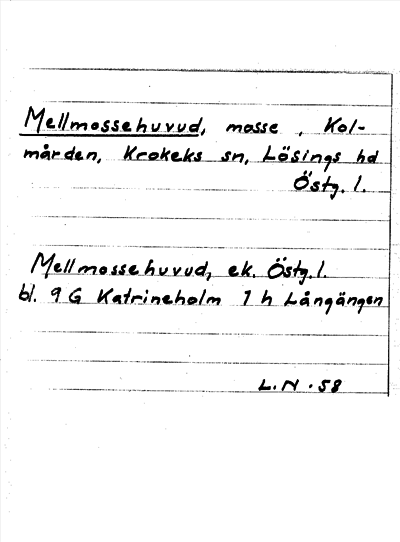 Mellmossehuvud, mosse, Kol-
mården, Krokeks sn, Lösings hd
Östg. l.
Mellmossehuvud, ek. Östg. l.
bl. 9 G Katrineholm 1 h Långängen
L. N. 58